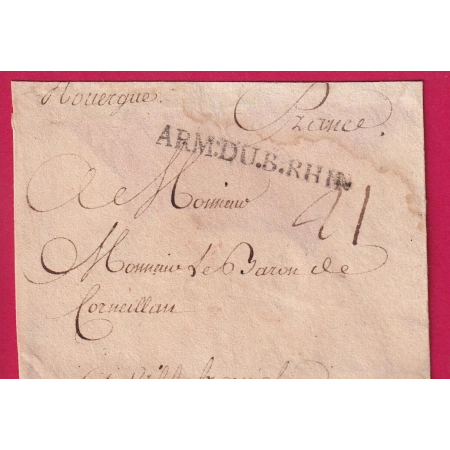 Rouergue. France.
ARM:DU.B.RHIN
A Monsieur 21
Monsieur Le Baron de
Corneillan